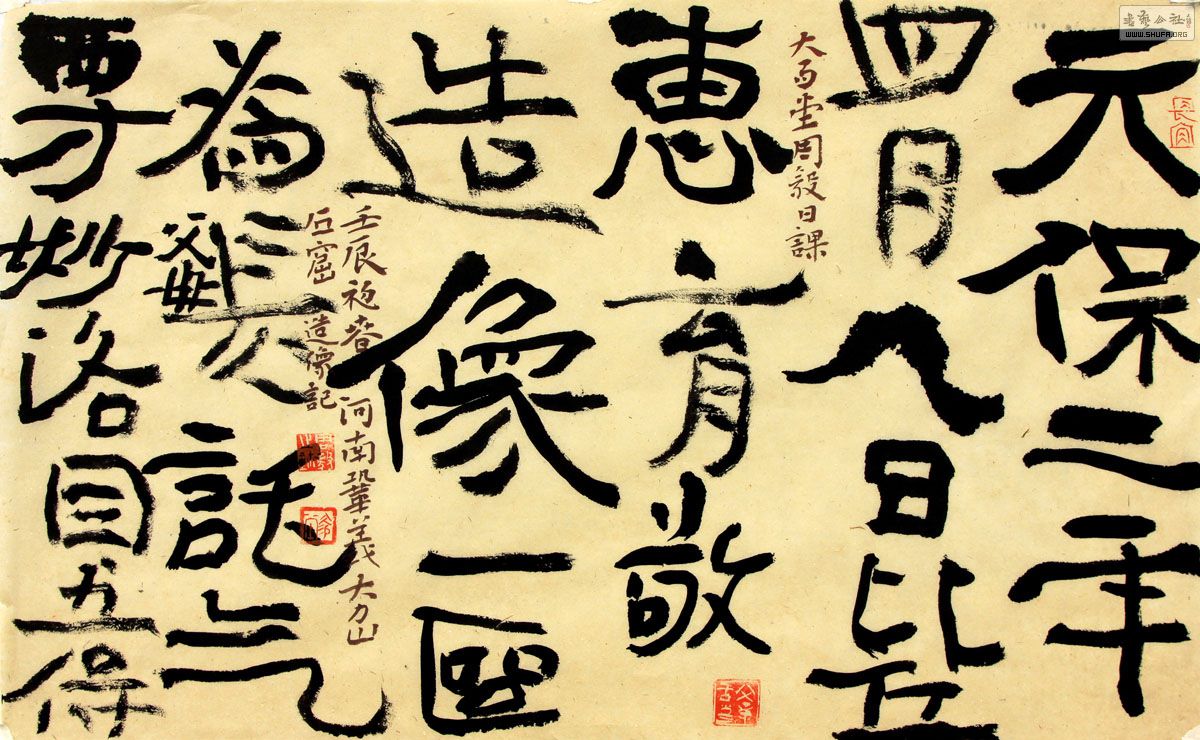 書藝公社
WWW.SHUFA.ORG
長宜
元保二年
四月八日比丘
大 堂周毅日課
惠育敬
造像一區
壬辰初春 河南鞏義大力山
石窟造像記
為 父母 託气
西方妙洛国五得